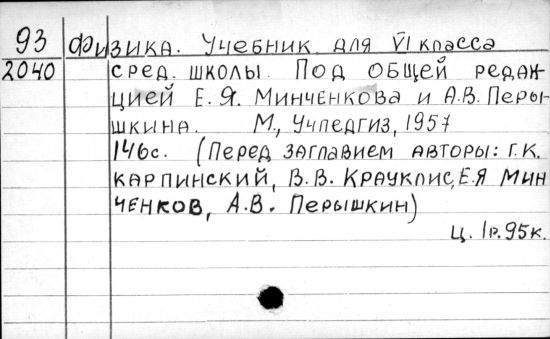 93 Физика. Учебник для VI класса
2040 сред. школы. Под общей редак-
цией Е.Я. Минченкова и А.В. Перы-
шкина. М., Учпедгиз, 1957
146с. (Перед заглавием авторы: Г.К.
Карпинский, В.В. Крауклис, Е.Я Мин
ченков, А.В. Перышкин)
Ц. 1р.95к.